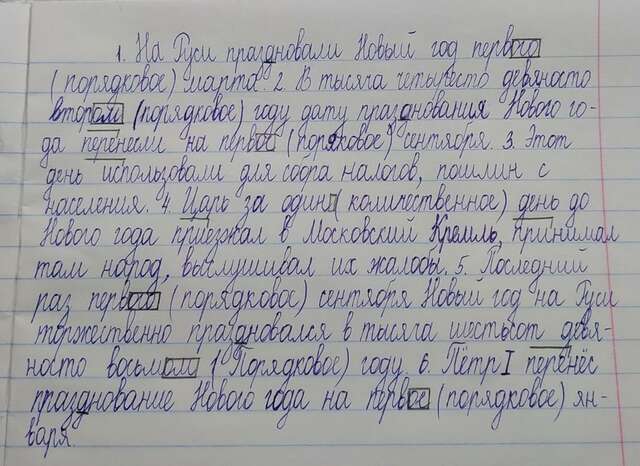 1. На Руси праздновали Новый год первого
(порядковое) марта. 2. В тысяча четыресто девяносто
втором (порядковое) году дату празднования Нового го-
да перенесли на первое (порядковое) сентября. 3. Этот
день использовали для сбора налогов, пошлин с
населения. 4. Царь за один (количественное) день до
Нового года приезжал в Московский Кремль, принимал
там народ, выслушивал их жалобы. 5. Последний
раз первого (порядковое) сентября Новый год на Руси
торжественно праздновался в тысяча шестьсот девя-
носто восьмом (Порядковое) году. 6. Пётр I перенёс
празднование Нового года на первое (порядковое) ян-
варя.